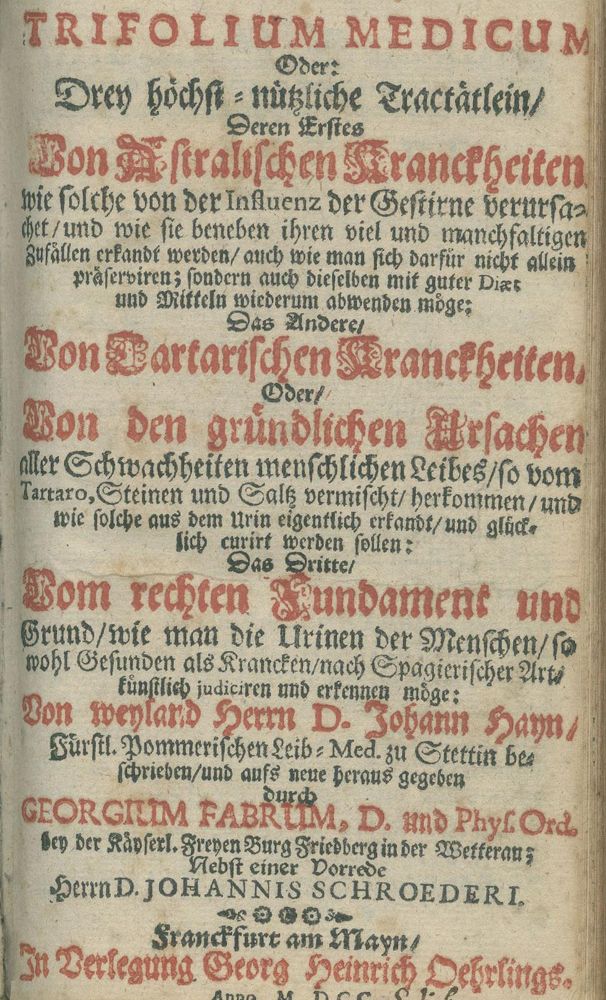 TRIFOLIUM MEDICUM
Oder:
Drey höchst-nützliche Tractätlein/
Deren Erstes
Von Astralischen Kranckheiten
wie solche von der Influenz der Gestirne verursa-
chet/und wie sie beneben ihren viel und manchfaltigen
Zufällen erkandt werden/auch wie man sich darfür nicht allein
präserviren; sondern auch dieselben mit guter Diæt
und Mitteln wiederum abwenden möge:
Das Andere/
Von Tartarischen Kranckheiten/
Oder/
Von den gründlichen Ursachen
aller Schwachheiten menschlichen Leibes/so vom
Tartaro, Steinen und Saltz vermischt/herkommen/und
wie solche aus dem Urin eigentlich erkandt/und glück-
lich curirt werden sollen:
Das Dritte/
Vom rechten Fundament und
Grund/wie man die Urinen der Menschen/so
wohl Gesunden als Krancken/nach Spagierischer Art/
künstlich judiciren und erkennen möge:
Von weyland Herrn D. Johann Hayn/
Fürstl. Pommerischen Leib-Med. zu Stettin be-
schrieben/und aufs neue heraus gegeben
durch
GEORGIUM FABRUM, D. und Phys. Ord.
bey der Käyserl. Freyen Burg Friedberg in der Wetterau;
Nebst einer Vorrede
Herrn D. JOHANNIS SCHROEDERI.
Franckfurt am Mayn/
In Verlegung Georg Heinrich Oehrlings.
Anno M DCC